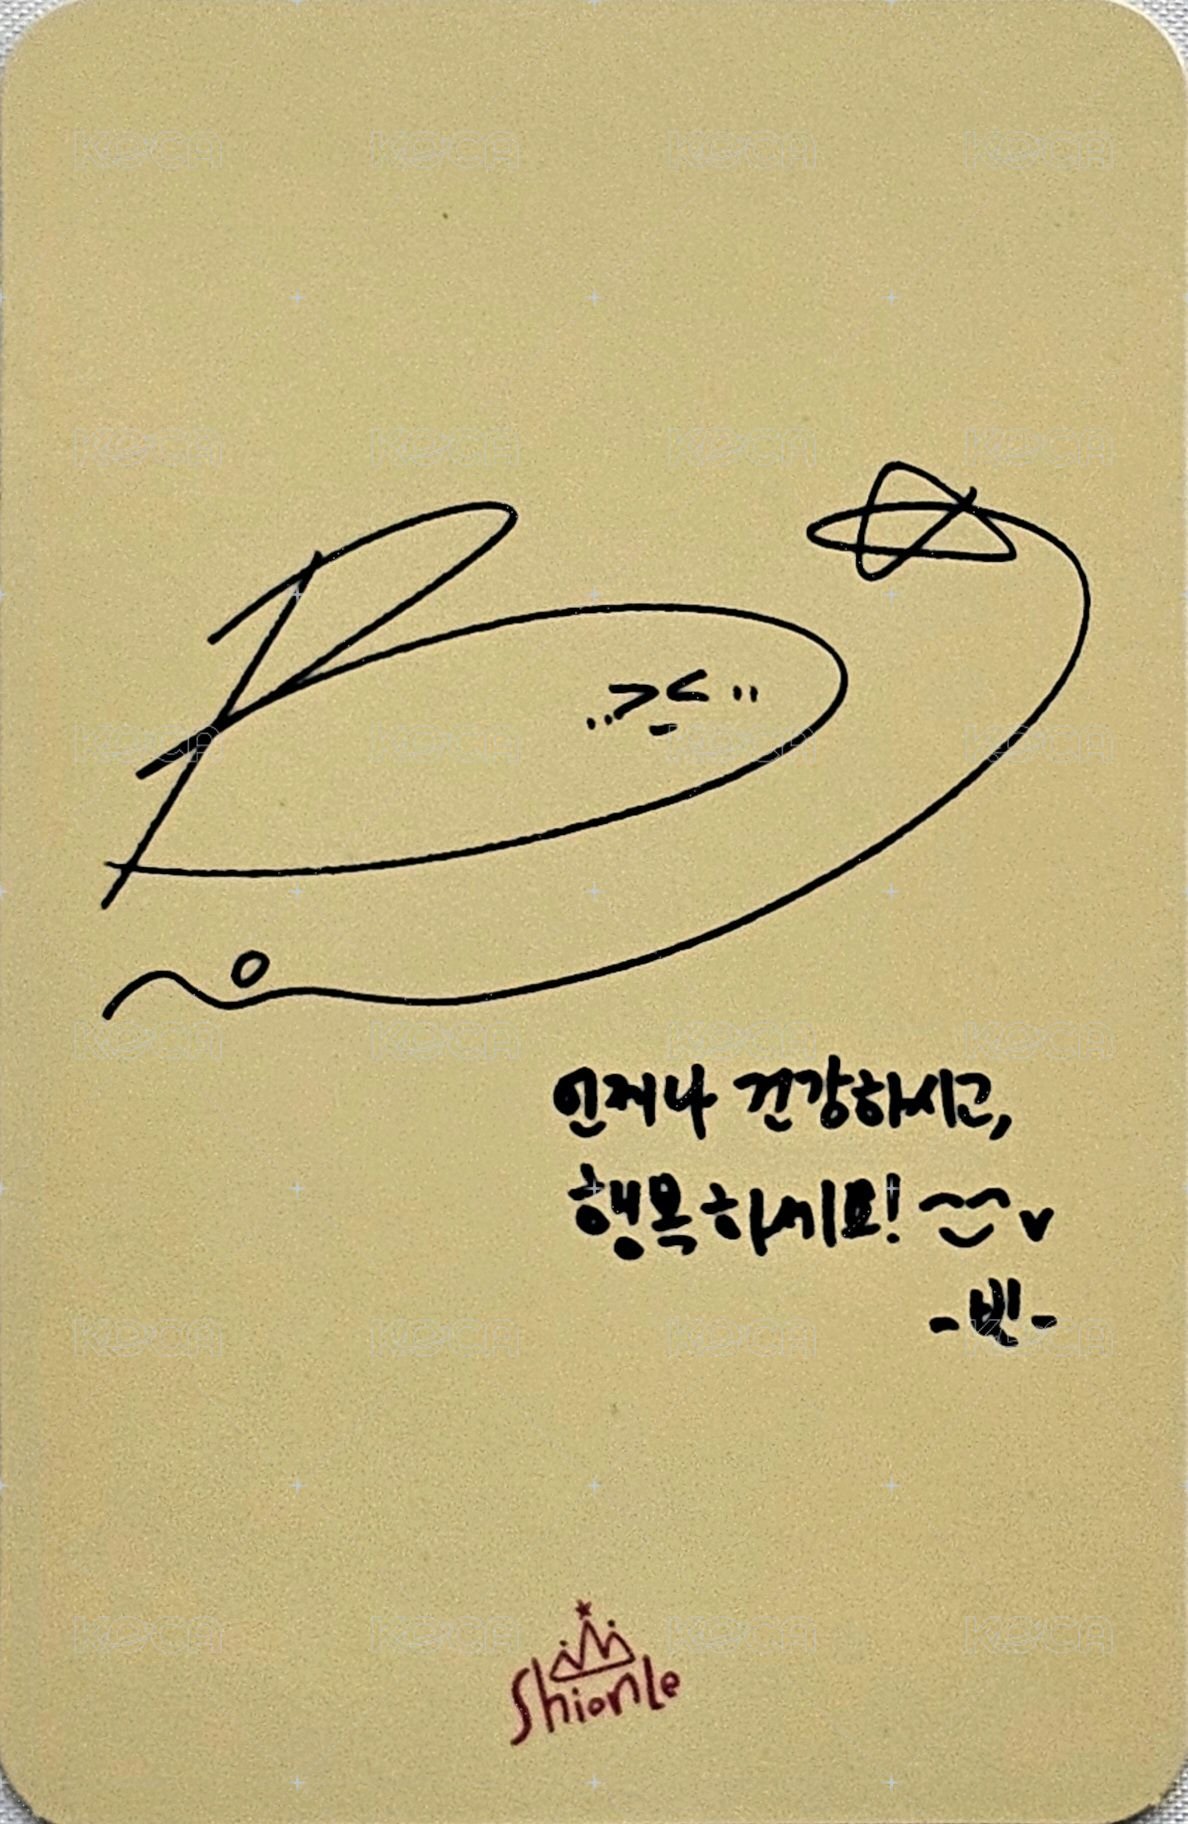 언제나 건강하시고,
행복하세요!
-빛-
Shionle